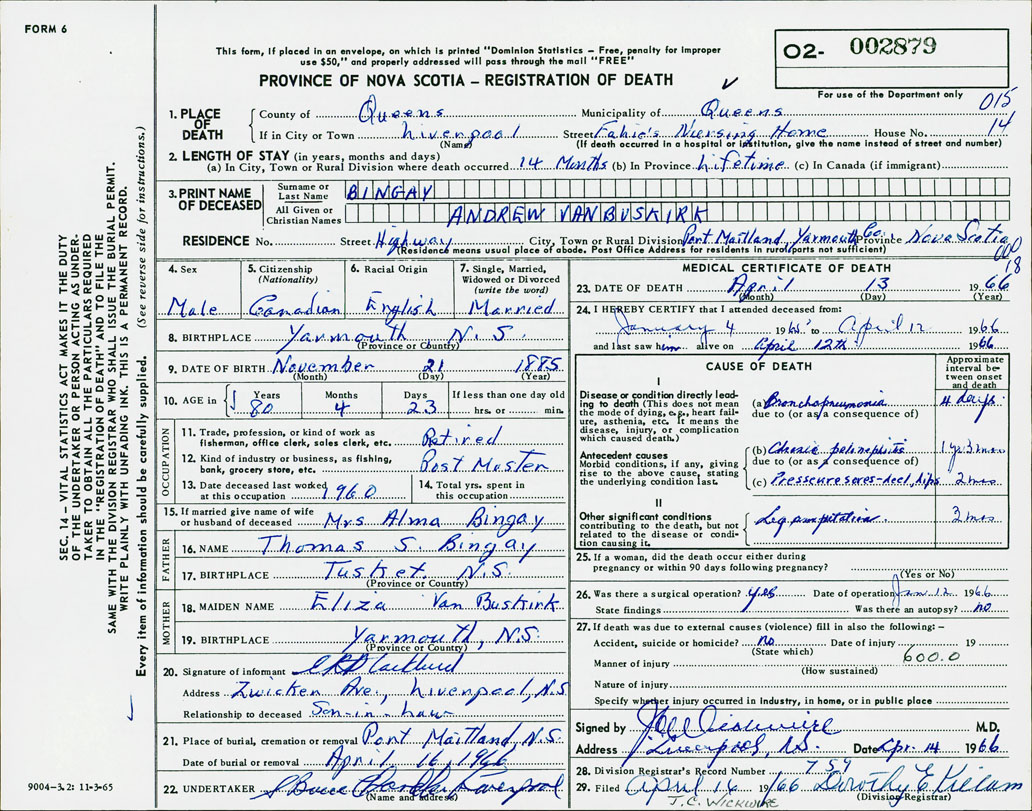 FORM 6
This form, if placed in an envelope, on which is printed "Dominion Statistics – Free, penalty for improper
use $50," and properly addressed will pass through the mail "FREE"
PROVINCE OF NOVA SCOTIA – REGISTRATION OF DEATH
O2- 002879
For use of the Department only
015
14
1. PLACE OF DEATH
County of Queens Municipality of Queens
If in City or Town Liverpool Street Fahie's Nursing Home House No.
(Name) (If death occurred in a hospital or institution, give the name instead of street and number)
2. LENGTH OF STAY (in years, months and days)
(a) In City, Town or Rural Division where death occurred 14 Months (b) In Province Lifetime (c) In Canada (if immigrant)
3. PRINT NAME OF DECEASED
Surname or Last Name BINGAY
All Given or Christian Names ANDREW VANBUSKIRK
RESIDENCE No. Street Highway City, Town or Rural Division Port Maitland, Yarmouth Co. Province Nova Scotia
(Residence means usual place of abode. Post Office Address for residents in rural parts not sufficient)
18
4. Sex Male
5. Citizenship (Nationality) Canadian
6. Racial Origin English
7. Single, Married, Widowed or Divorced (write the word) Married
8. BIRTHPLACE Yarmouth N.S.
(Province or Country)
9. DATE OF BIRTH November 21 1885
(Month) (Day) (Year)
10. AGE in Years 80 Months 4 Days 23 If less than one day old hrs. or min.
OCCUPATION
11. Trade, profession, or kind of work as fisherman, office clerk, sales clerk, etc. Retired
12. Kind of industry or business, as fishing, bank, grocery store, etc. Post Master
13. Date deceased last worked at this occupation 1960
14. Total yrs. spent in this occupation
15. If married give name of wife or husband of deceased Mrs Alma Bingay
FATHER
16. NAME Thomas S. Bingay
17. BIRTHPLACE Tusket, N.S.
(Province or Country)
MOTHER
18. MAIDEN NAME Eliza Van Buskirk
19. BIRTHPLACE Yarmouth, N.S.
(Province or Country)
20. Signature of informant
Address Zwicker Ave., Liverpool, N.S.
Relationship to deceased Son-in-Law
21. Place of burial, cremation or removal Port Maitland, N.S.
Date of burial or removal April 16, 1966
22. UNDERTAKER Liverpool
(Name and address)
MEDICAL CERTIFICATE OF DEATH
23. DATE OF DEATH April 13 1966
(Month) (Day) (Year)
24. I HEREBY CERTIFY that I attended deceased from:
January 4 to April 12 1966
and last saw him alive on April 12th 1966
CAUSE OF DEATH
Approximate interval between onset and death
I
Disease or condition directly leading to death (This does not mean the mode of dying, e.g., heart failure, asthenia, etc. It means the disease, injury, or complication which caused death.)
(a) Bronchopneumonia 4 days
due to (or as a consequence of)
Antecedent causes
Morbid conditions, if any, giving rise to the above cause, stating the underlying condition last.
(b) Chronic pyelonephritis 1 yr 3 mos
due to (or as a consequence of)
(c) Pressure sores-heel, hips 2 mos
II
Other significant conditions contributing to the death, but not related to the disease or condition causing it.
Leg amputation. 3 mos
25. If a woman, did the death occur either during pregnancy or within 90 days following pregnancy?
(Yes or No)
26. Was there a surgical operation? yes Date of operation Jan. 12 1966
State findings Was there an autopsy? no
27. If death was due to external causes (violence) fill in also the following: –
Accident, suicide or homicide? no Date of injury 19
(State which)
600.0
Manner of injury
(How sustained)
Nature of injury
Specify whether injury occurred in industry, in home, or in public place
Signed by J C Wickwire M.D.
Address Liverpool, N.S. Date Apr. 14 1966
28. Division Registrar's Record Number 759
29. Filed April 16 1966 Dorothy E Killam
(Division Registrar)
J.C. WICKWIRE
SEC. 14 – VITAL STATISTICS ACT MAKES IT THE DUTY
OF THE UNDERTAKER OR PERSON ACTING AS UNDER-
TAKER TO OBTAIN ALL THE PARTICULARS REQUIRED
IN THE "REGISTRATION OF DEATH" AND TO FILE THE
SAME WITH THE DIVISION REGISTRAR WHO SHALL ISSUE THE BURIAL PERMIT.
WRITE PLAINLY WITH UNFADING INK. THIS IS A PERMANENT RECORD.
Every item of information should be carefully supplied. (See reverse side for instructions.)
9004-3.2: 11-3-65